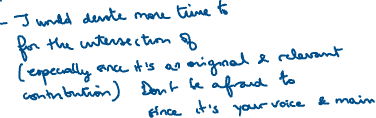 - I would devote more time to
for the intersection of
(especially since it's an original & relevant
contribution) Don't be afraid to
since it's your voice & main